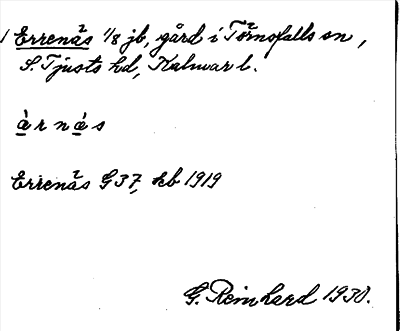 Errenäs 1/8 jb, gård i Törnsfalls sn,
S. Tjusts hd, Kalmar l.
àrnàs
Errenäs G 37, kb 1919
G. Reinhard 1930.